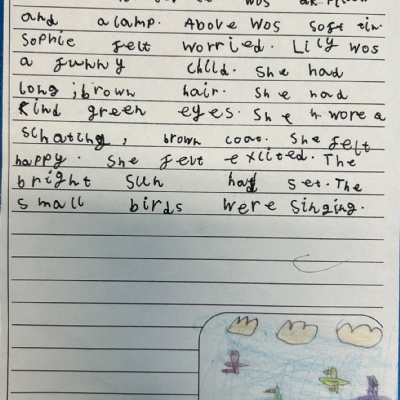 wos
and a lamp. Above wos soft
Sophie felt worried. Lily wos
a funny child. She had
long, brown hair. She had
kind green eyes. She wore a
schating, brown coat. She felt
happy. She felt exlited. The
bright sun had set. The
small birds were singing.